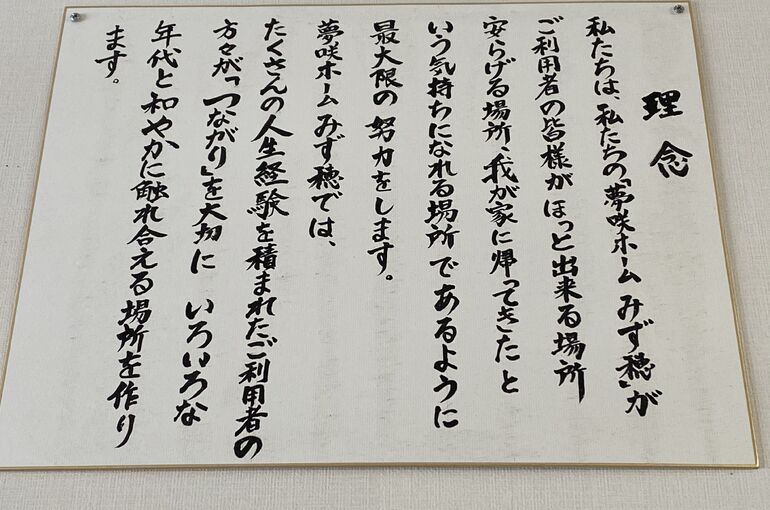 理念
私たちは、私たちの「夢咲ホームみず穂」が
ご利用者の皆様がほっと出来る場所
安らげる場所、我が家に帰ってきたと
いう気持ちになれる場所であるように
最大限の努力をします。
夢咲ホームみず穂では、
たくさんの人生経験を積まれたご利用者の
方々が「つながり」を大切に いろいろな
年代と和やかに触れ合える場所を作り
ます。